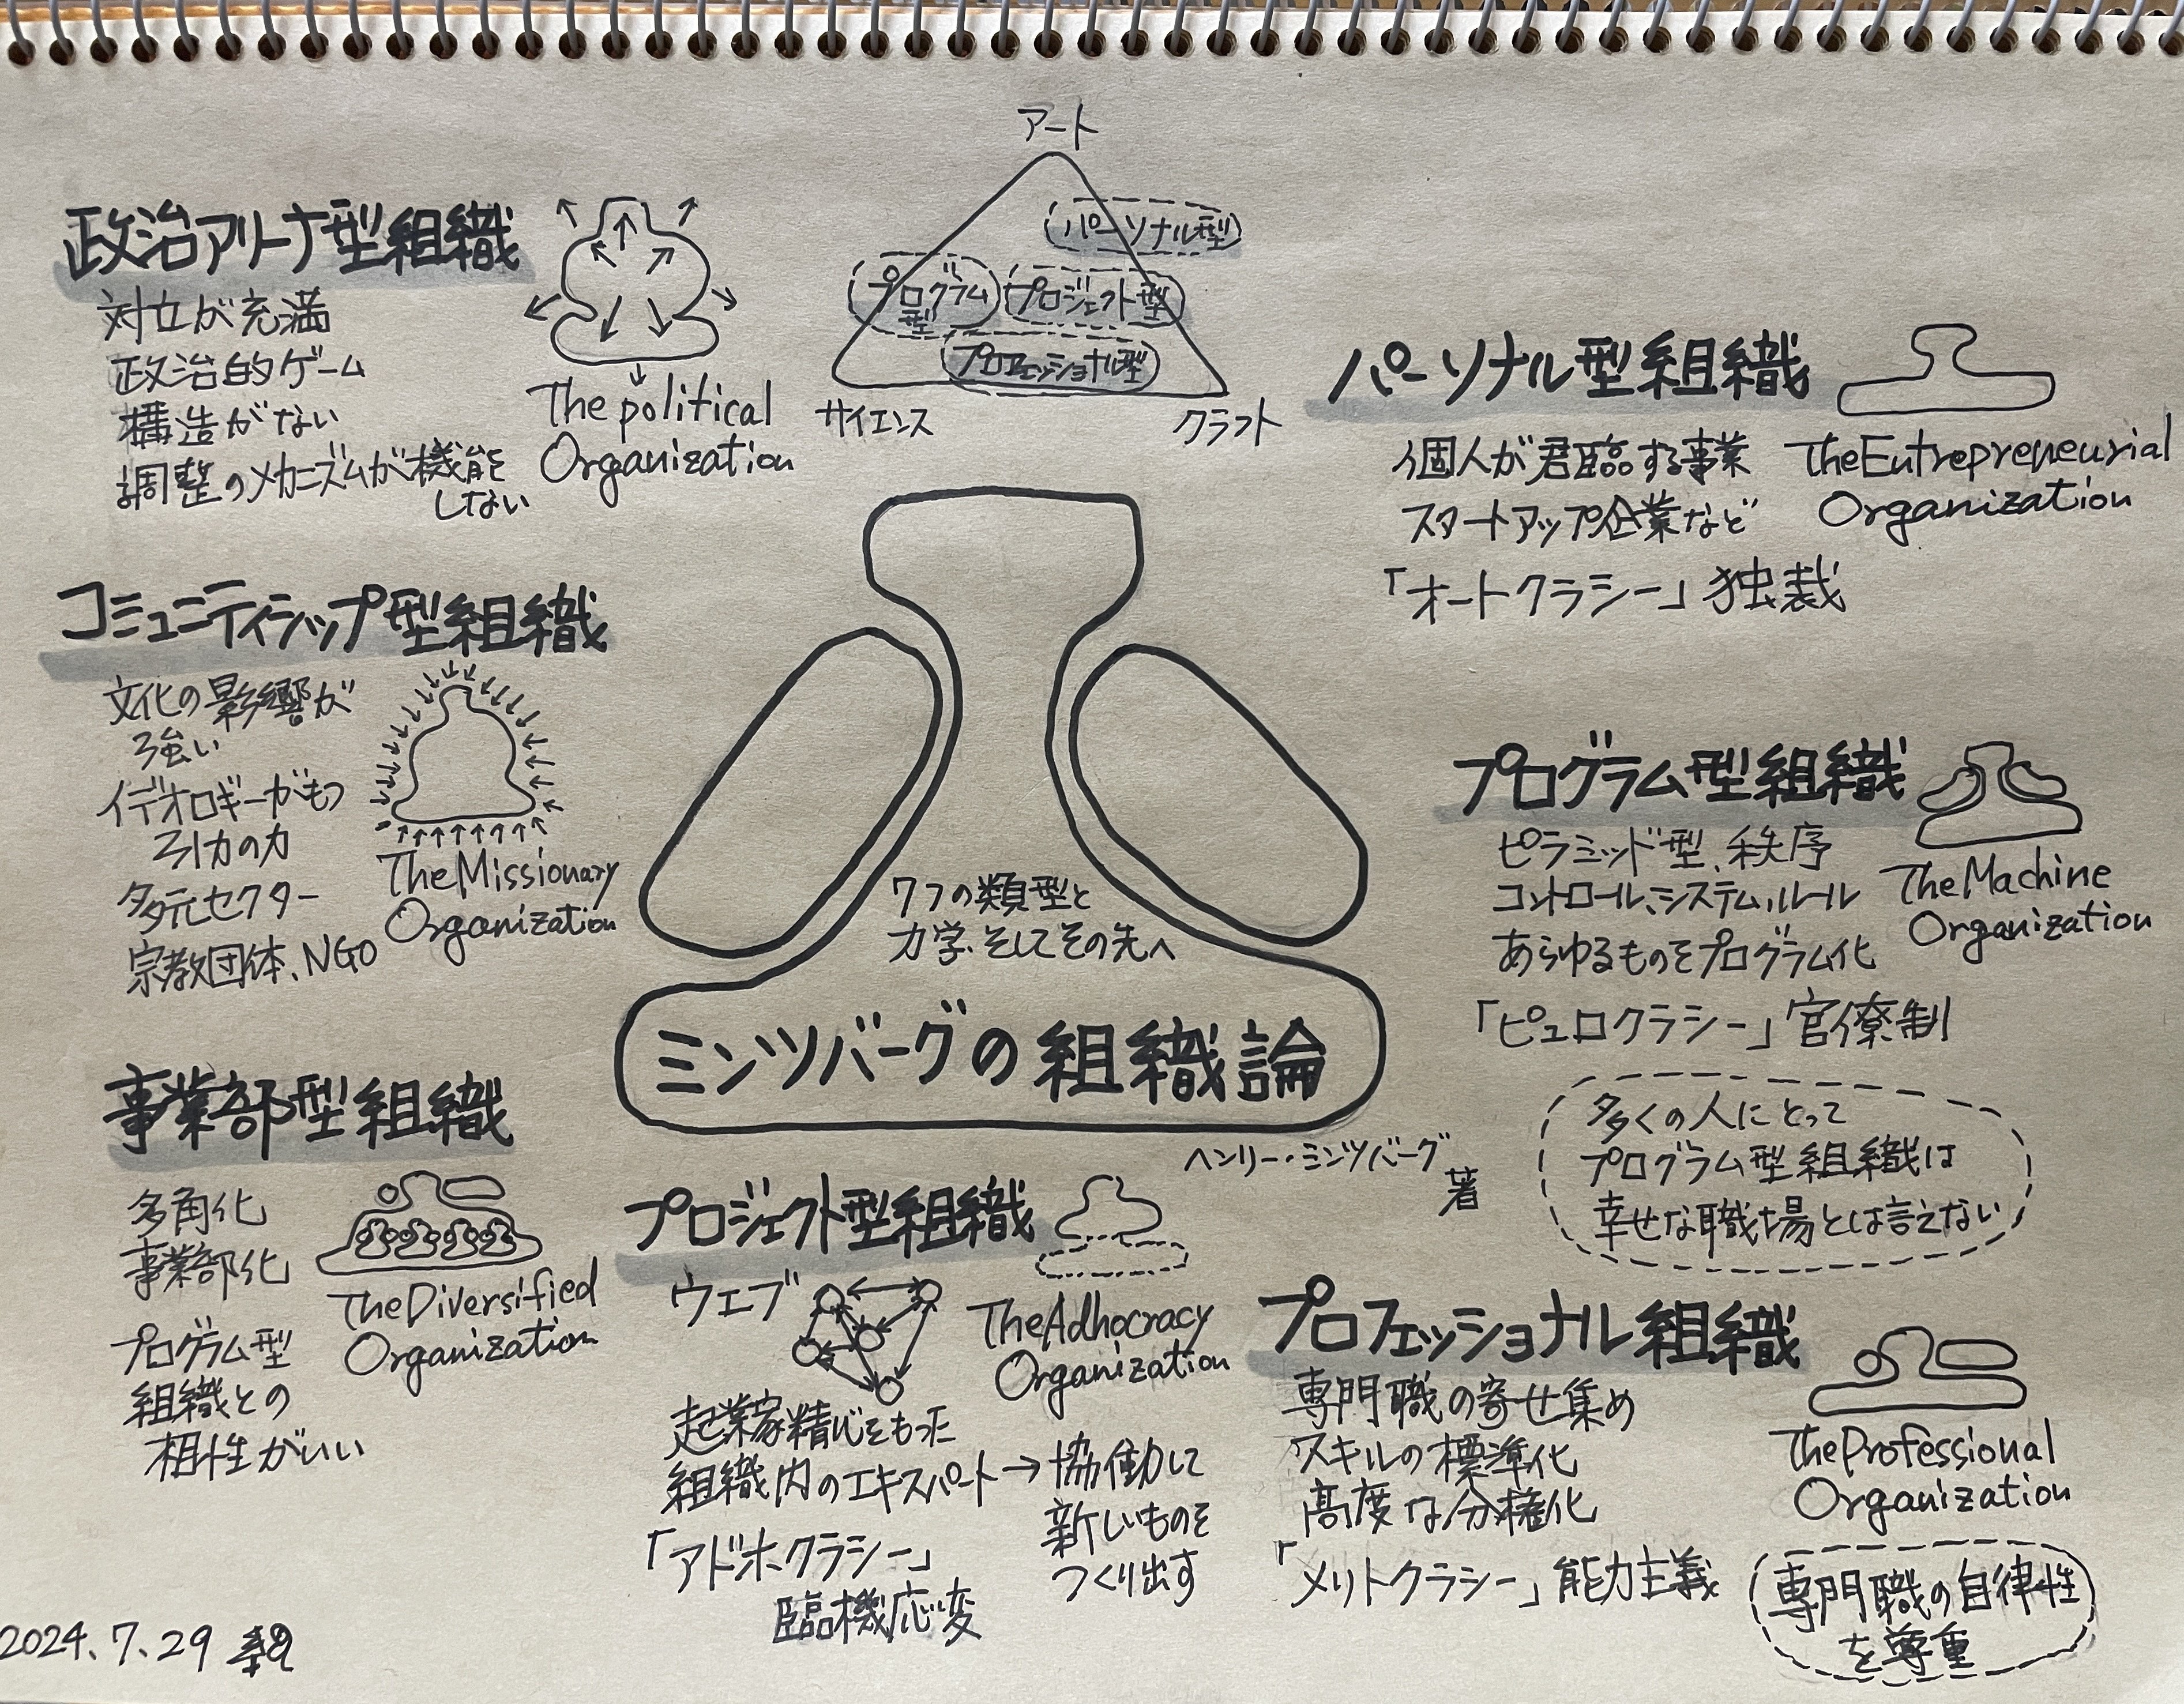 アート
パーソナル型
プログラム
型
プロジェクト型
プロフェッショナル型
サイエンス
クラフト
政治アリーナ型組織
対立が充満
政治的ゲーム
構造がない
調整のメカニズムが機能
しない
The political
Organization
コミュニティシップ型組織
文化の影響が
強い
イデオロギーがもつ
引力の力
多元セクター
宗教団体、NGO
The Missionary
Organization
事業部型組織
多角化
事業部化
プログラム型
組織との
相性がいい
The Diversified
Organization
7つの類型と
力学、そしてその先へ
ミンツバーグの組織論
ヘンリー・ミンツバーグ
著
パーソナル型組織
個人が君臨する事業
スタートアップ企業など
「オートクラシー」独裁
The Entrepreneurial
Organization
プログラム型組織
ピラミッド型、秩序
コントロール、システム、ルール
あらゆるものをプログラム化
「ピュロクラシー」官僚制
The Machine
Organization
多くの人にとって
プログラム型組織は
幸せな職場とは言えない
プロジェクト型組織
ウェブ
The Adhocracy
Organization
起業家精心をもった
組織内のエキスパート→協働して
新しいものを
つくり出す
「アドホクラシー」
臨機応変
プロフェッショナル組織
専門職の寄せ集め
スキルの標準化
高度な分権化
「メリトクラシー」能力主義
The Professional
Organization
専門職の自律性
を尊重
2024.7.29